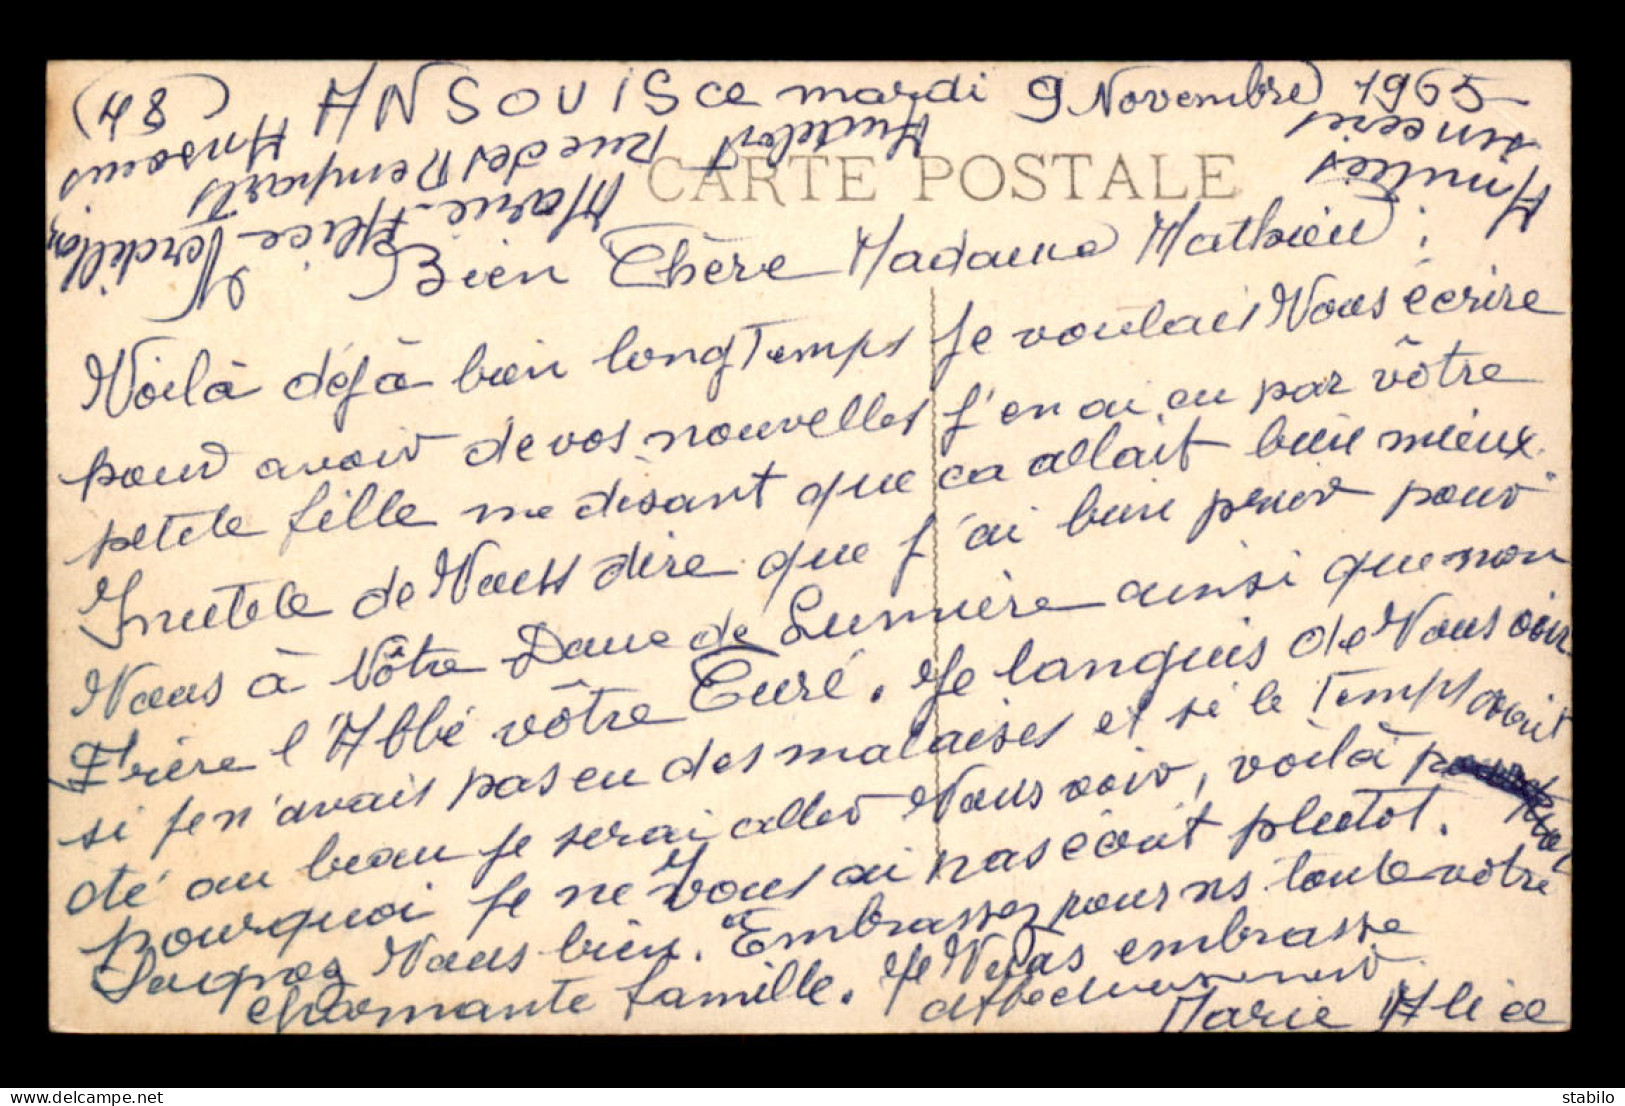 (48) ANSOUIS ce mardi 9 Novembre 1965
CARTE POSTALE
Bien Chère Madame Mathieu :
Voilà déjà bien longTemps Je voulais Vous écrire
pour avoir de vos nouvelles J'en ai eu par vôtre
petite fille me disant que ça allait bien mieux.
Inutile de Vous dire que J'ai bien prier pour
Vous à Nôtre Dame de Lumière ainsi que mon
Frère l'Abbé vôtre Curé. Je languis de Vous voir
si Je n'avais pas eu des malaises et si le Temps avait
été au beau Je serai aller Vous voir, voilà
pourquoi Je ne Vous ai pas écrit plutot.
Soignez Vous bien. Embrassez pour ns toute vôtre
charmante famille. Je Vous embrasse
affectueusement
Marie Alice
Amitiés
sincères
Audebert
Marie-Alice
Rue des Remparts
Ansouis
stabilo